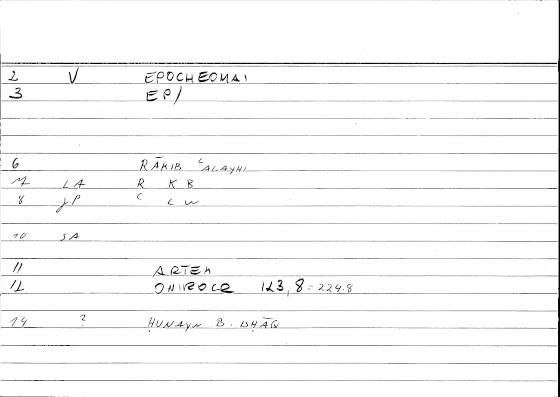 2 V EPOCHEOMAI
3 EP/
6 RĀKIB ʿALAYHI
7 LA R K B
8 JP ʿ L W
10 SA
11 ARTEM
12 ONIROCR 123,8 = 224.8
14 ? ḤUNAYN B. ISḤĀQ